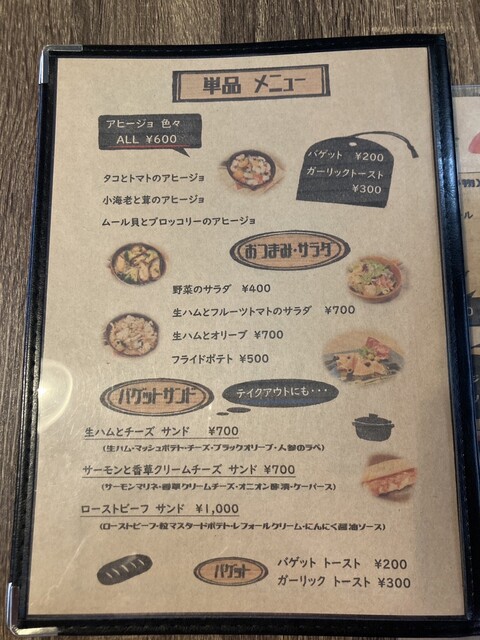 単品 メニュー
アヒージョ 色々
ALL ¥600
バゲット ¥200
ガーリックトースト
¥300
タコとトマトのアヒージョ
小海老と茸のアヒージョ
ムール貝とブロッコリーのアヒージョ
おつまみ・サラダ
野菜のサラダ ¥400
生ハムとフルーツトマトのサラダ ¥700
生ハムとオリーブ ¥700
フライドポテト ¥500
バゲットサンド
テイクアウトにも・・・
生ハムとチーズ サンド ¥700
(生ハム・マッシュポテト・チーズ・ブラックオリーブ・人参のラペ)
サーモンと香草クリームチーズ サンド ¥700
(サーモンマリネ・香草クリームチーズ・オニオン酢漬・ケーパース)
ローストビーフ サンド ¥1,000
(ローストビーフ・粒マスタードポテト・レフォールクリーム・にんにく醤油ソース)
バゲット
バゲット トースト ¥200
ガーリック トースト ¥300